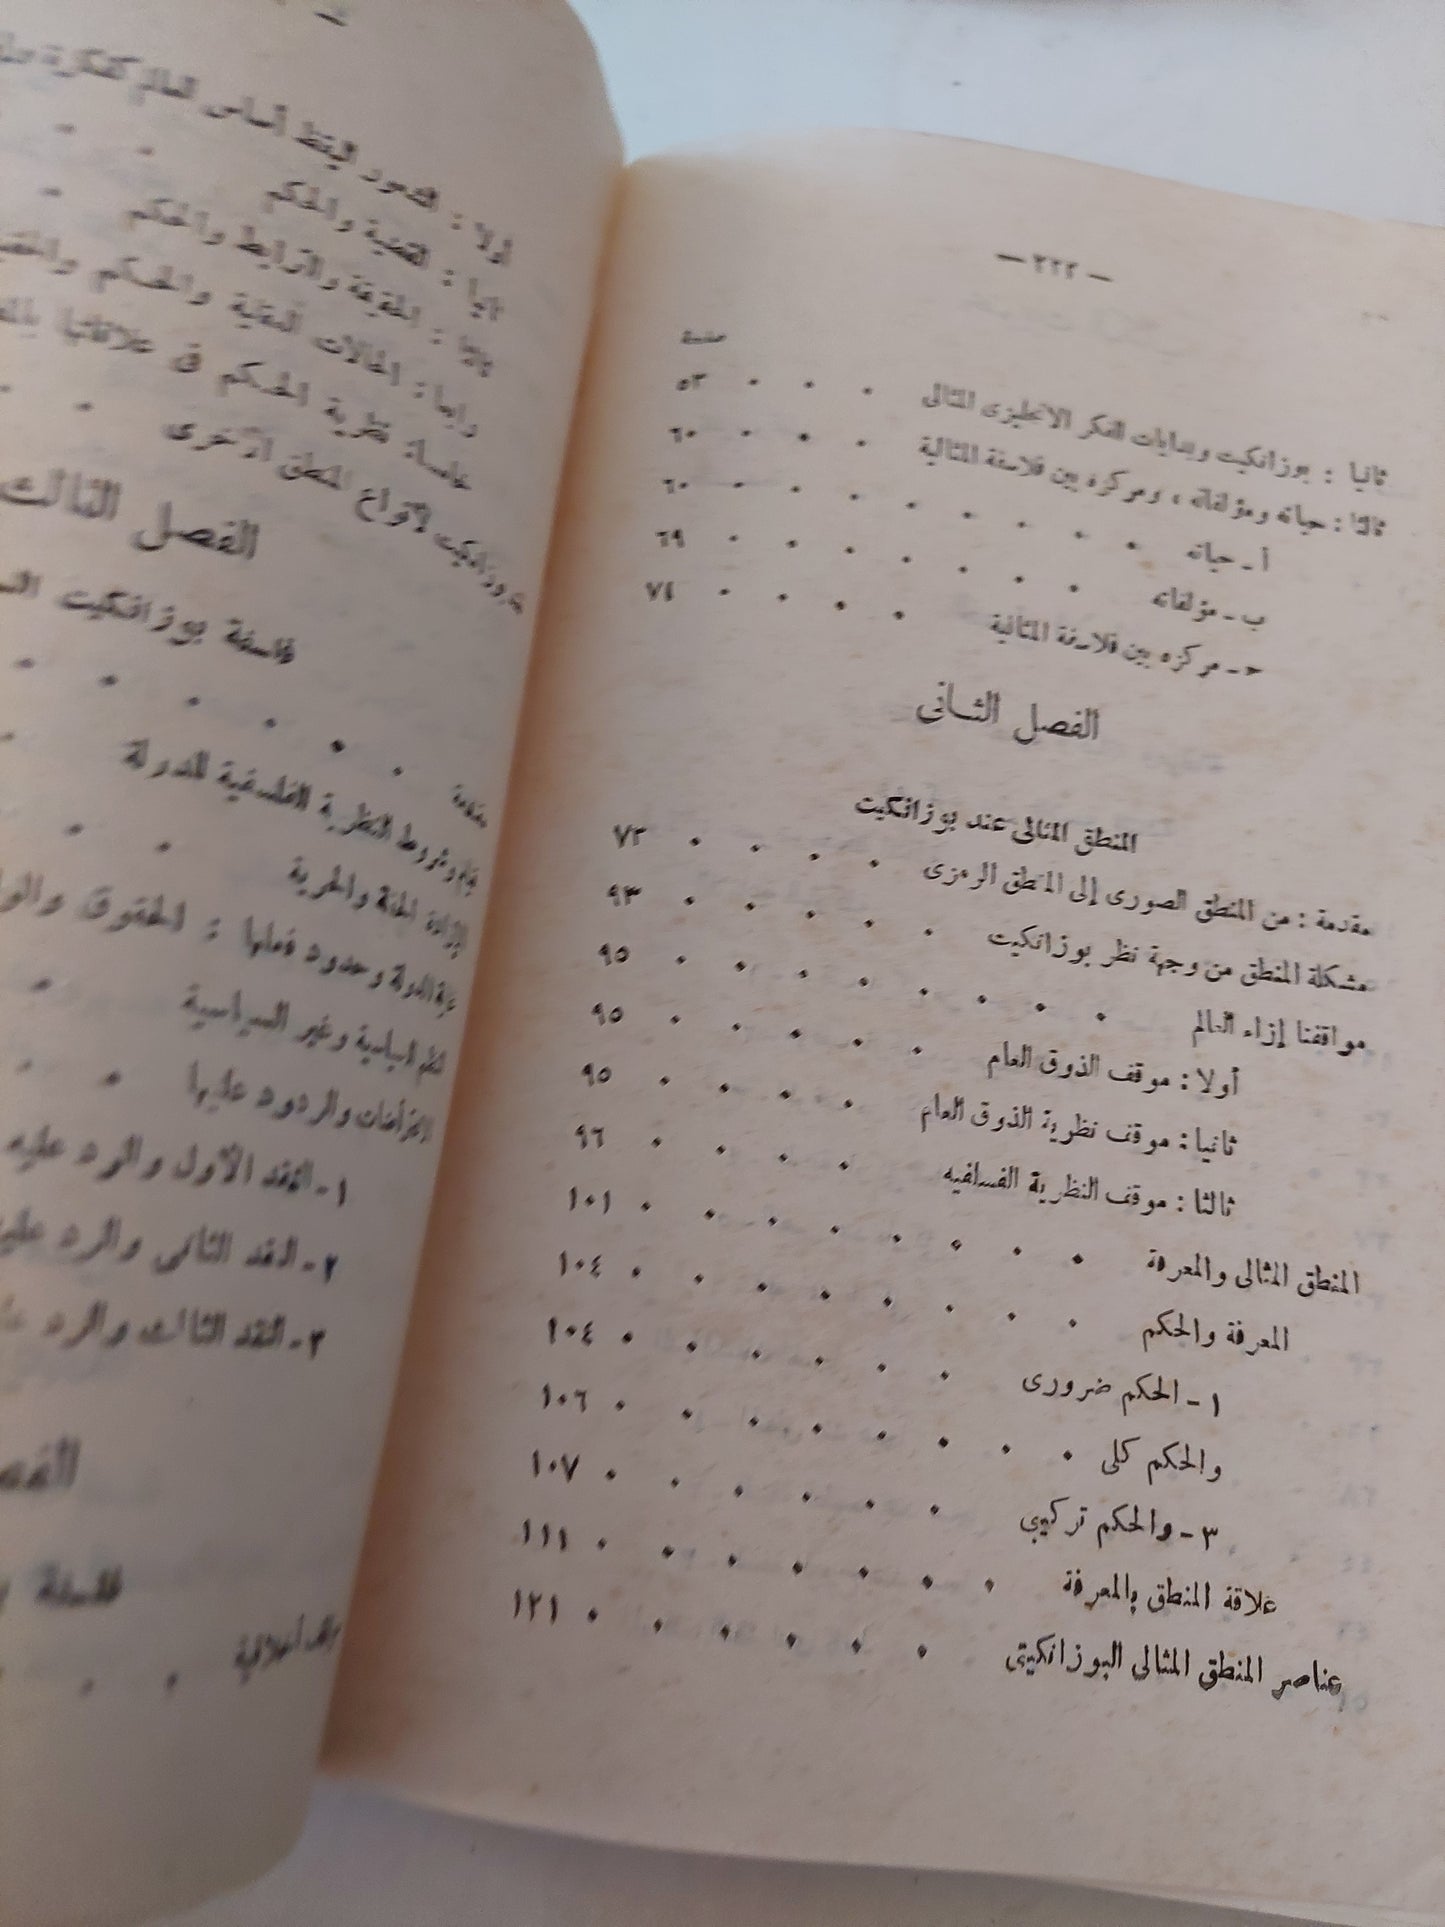 — ٣٢٢ —
صفحة
ثانيا : بوزانكيت وبدايات الفكر الانجليزى المثالى . . . ٥٣
ثالثا : حياته ومؤلفاته ، ومركزه بين فلاسفة المثالية . . . ٦٠
أ ـ حياته . . . . . . . . ٦٠
ب ـ مؤلفاته . . . . . . . ٦٩
حـ ـ مركزه بين فلاسفة المثالية . . . . ٧٤
الفصل الثـانى
المنطق المثالى عند بوزانكيت
مقدمة : من المنطق الصورى إلى المنطق الرمزى . . . . ٧٣
مشكلة المنطق من وجهة نظر بوزانكيت . . . . . ٩٣
مواقفنا إزاء العالم . . . . . . . . ٩٥
أولا : موقف الذوق العام . . . . . ٩٥
ثانيا : موقف نظرية الذوق العام . . . . ٩٥
ثالثا : موقف النظرية الفسلفيه . . . . ٩٦
المنطق المثالى والمعرفة . . . . . . . . ١٠١
المعرفة والحكم . . . . . . . . ١٠٤
١ ـ الحكم ضرورى . . . . . . ١٠٤
والحكم كلى . . . . . . . . ١٠٦
٣ ـ والحكم تركيبى . . . . . . ١٠٧
علاقة المنطق بالمعرفة . . . . . . . ١١١
عناصر المنطق المثالى البوزانكيتى . . . . . . ١٢١
أولا : الشعور اليقظ أساس العالم كفكرة
ثانيا : القضية والحكم
ثالثا : الحقيقة والترابط والحكم
رابعا : الحالات العقلية والحكم
خامسا : نظرية الحكم فى علاقاتها
بوزانكيت لأنواع المنطق الأخرى
الفصل الثالث
فلسفة بوزانكيت
مقدمة
وشروط النظرية الفلسفية للدولة
الإرادة الحقة والحرية
الدولة وحدود فعلها : الحقوق
السياسية وغير السياسية
والردود عليها
١ ـ النقد الأول والرد عليه
٢ ـ النقد الثانى والرد
٣ ـ النقد الثالث والرد
فلسفة